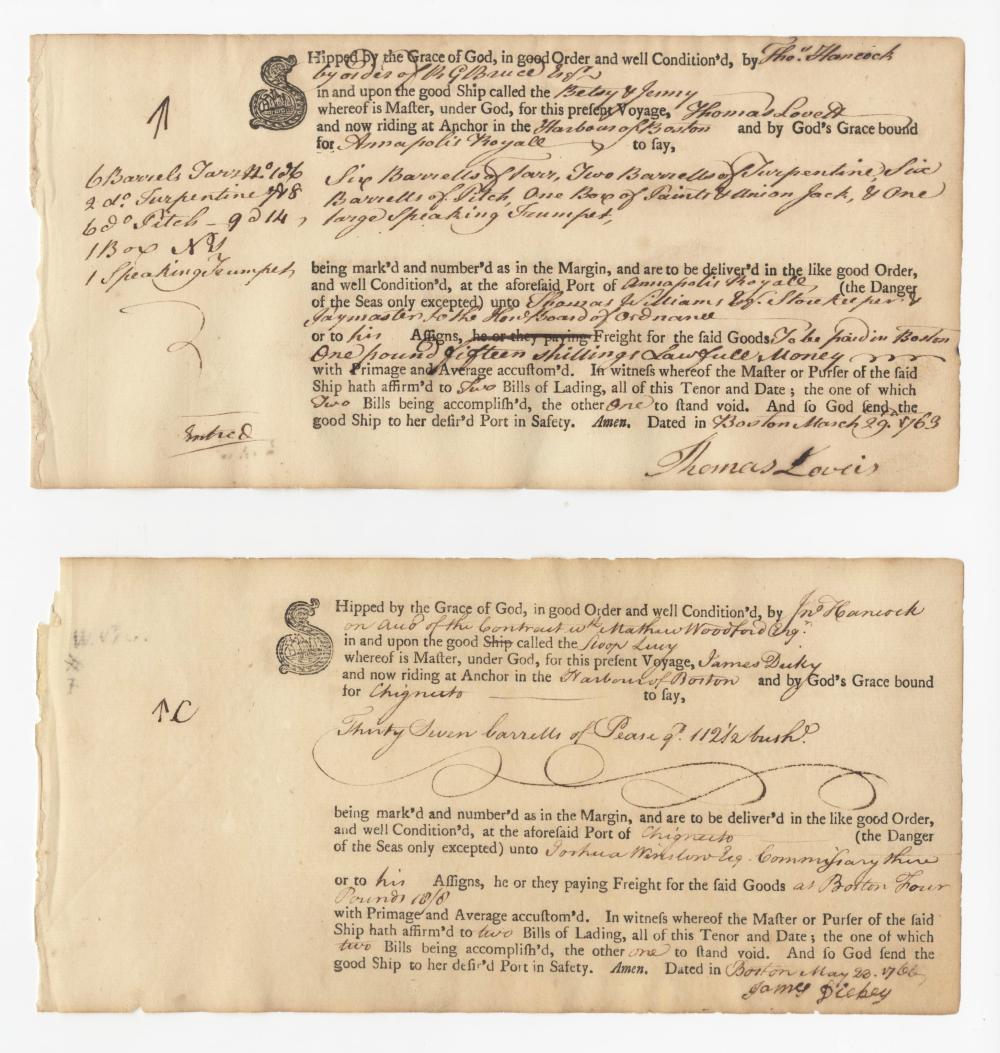 SHipped by the Grace of God, in good Order and well Condition'd, by Thos. Hancock
by order of R G Bruce Esqr
in and upon the good Ship called the Betsy & Jenny
whereof is Master, under God, for this present Voyage, Thomas Lovett
and now riding at Anchor in the Harbour of Boston and by God's Grace bound
for Annapolis Royall to say,
6 Barrels Tarr
2 do. Turpentine
6 do Pitch 9 @ 14
1 Box No. 1
1 Speaking Trumpet
Six Barrells of Tarr, Two Barrells of Turpentine, Six
Barrells of Pitch, One Box of Paints & Union Jack, & One
large Speaking Trumpet,
being mark'd and number'd as in the Margin, and are to be deliver'd in the like good Order,
and well Condition'd, at the aforesaid Port of Annapolis Royall, (the Danger
of the Seas only excepted) unto Thomas Williams Esq. Storekeeper &
Paymaster to the Honble Board of Ordnance
or to his Assigns, he or they paying Freight for the said Goods, To be paid in Boston
One pound fifteen shillings Lawfull Money
with Primage and Average accustom'd. In witness whereof the Master or Purser of the said
Ship hath affirm'd to Two Bills of Lading, all of this Tenor and Date; the one of which
Two Bills being accomplish'd, the other One to stand void. And so God send the
good Ship to her desir'd Port in Safety. Amen. Dated in Boston March 29. 1763
Entred
Thomas Lovett
SHipped by the Grace of God, in good Order and well Condition'd, by Jno Hancock
on Acco of the Contract wth Mathew Woodford Esqr.
in and upon the good Ship called the Sloop Lucy
whereof is Master, under God, for this present Voyage, James Dicky
and now riding at Anchor in the Harbour of Boston and by God's Grace bound
for Chignecto to say,
C
Thirty Seven barrells of Pease qt. 112 1/2 bushs.
being mark'd and number'd as in the Margin, and are to be deliver'd in the like good Order,
and well Condition'd, at the aforesaid Port of Chignecto (the Danger
of the Seas only excepted) unto Joshua Winslow Esq. Commissary there
or to his Assigns, he or they paying Freight for the said Goods at Boston Four
Pounds 18/8
with Primage and Average accustom'd. In witness whereof the Master or Purser of the said
Ship hath affirm'd to two Bills of Lading, all of this Tenor and Date; the one of which
two Bills being accomplish'd, the other one to stand void. And so God send the
good Ship to her desir'd Port in Safety. Amen. Dated in Boston May 23. 1766
James Dickey